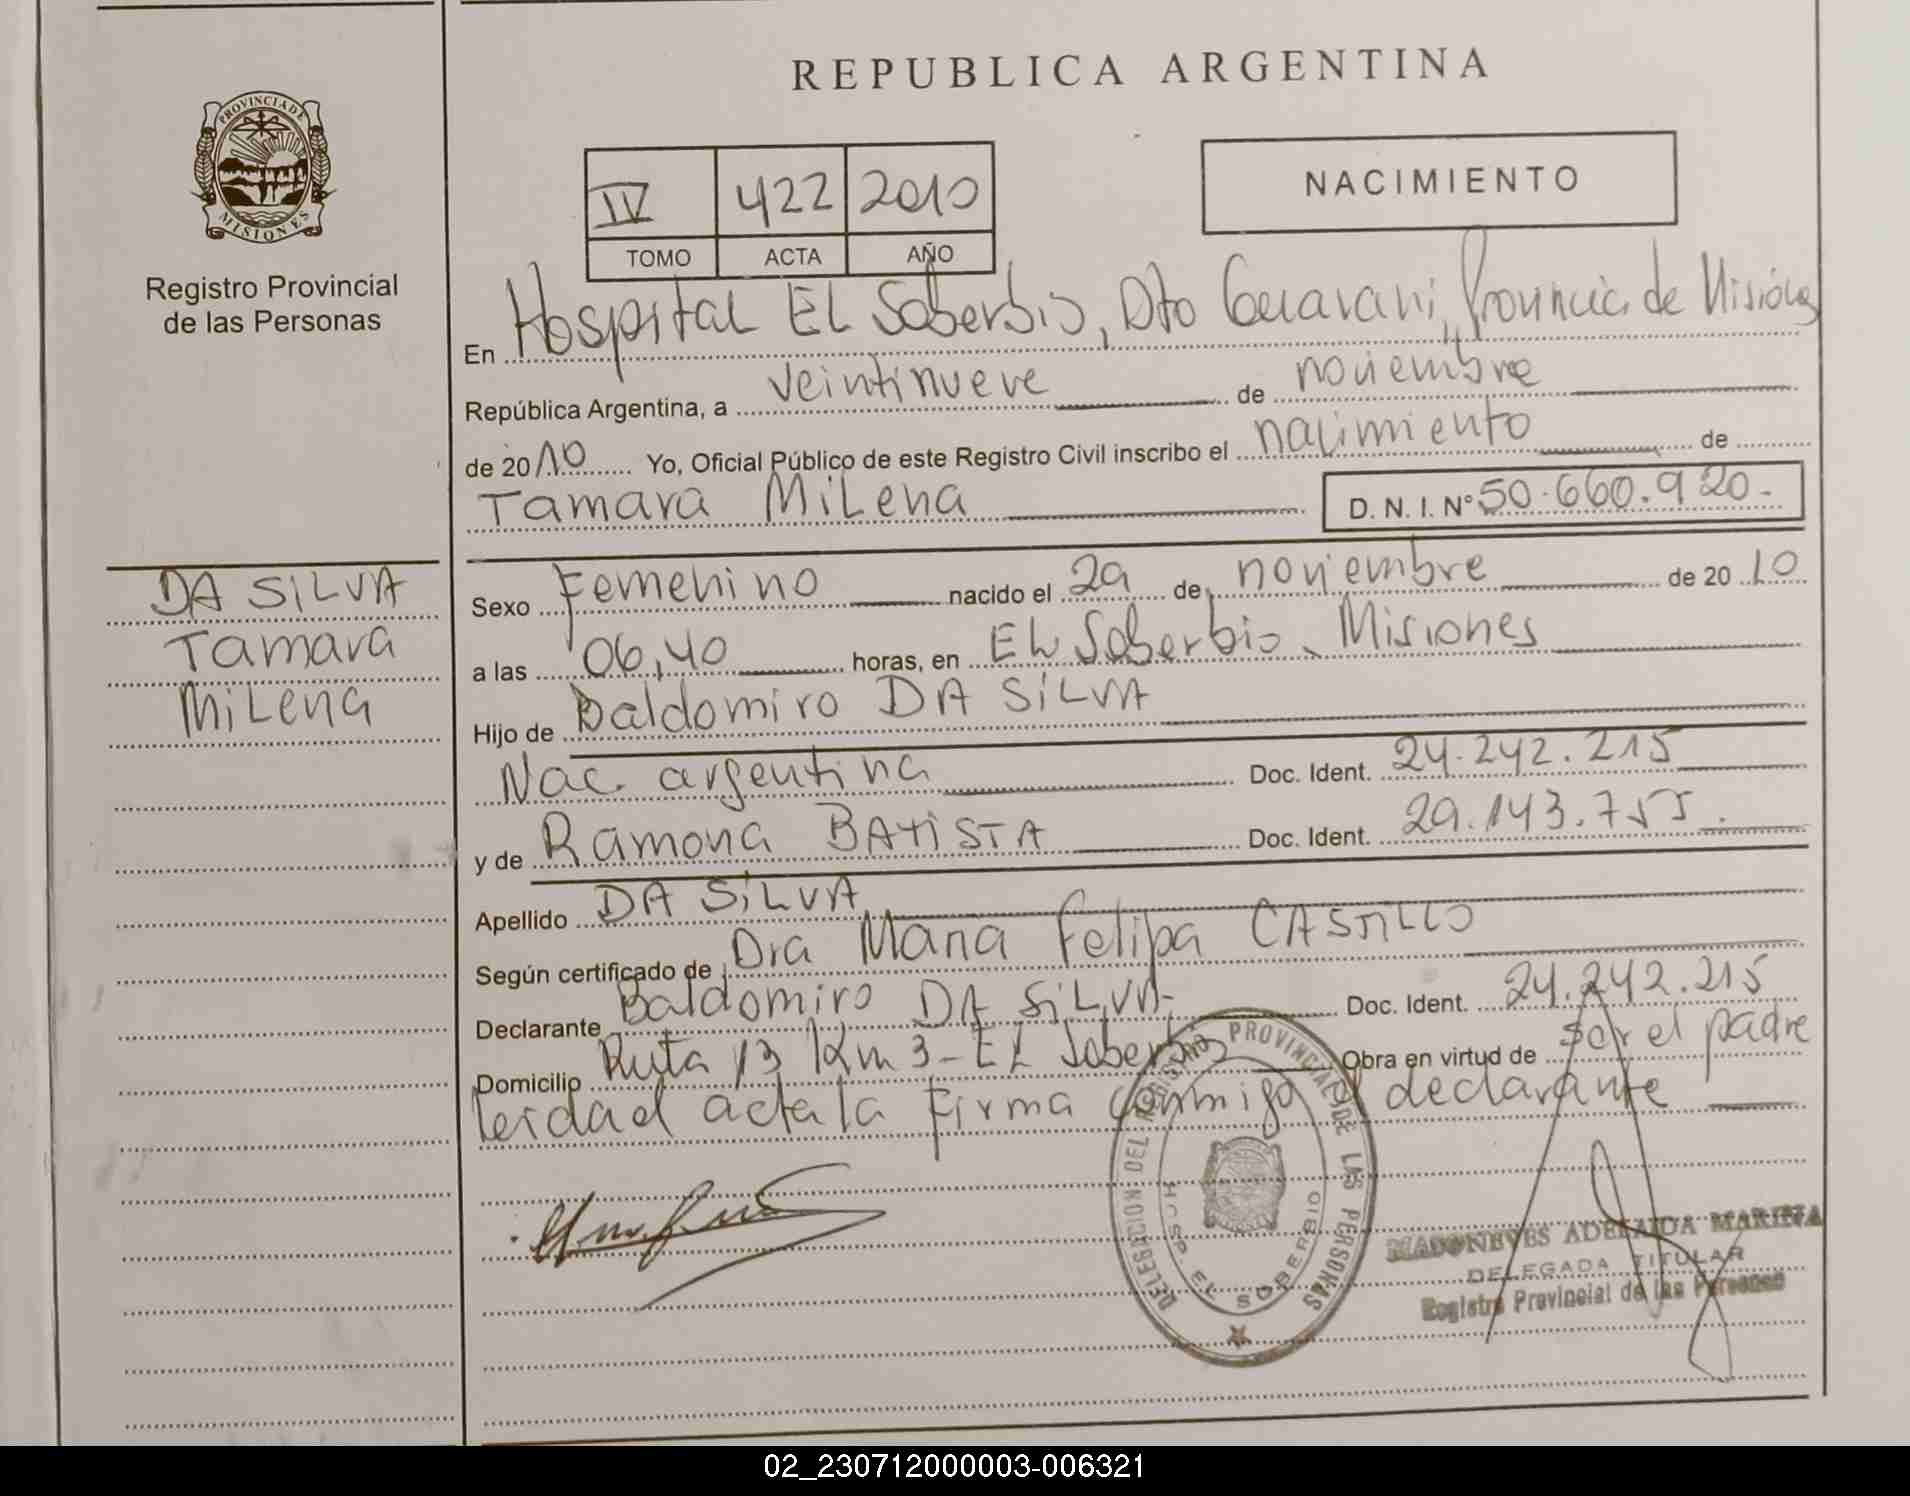 REPUBLICA ARGENTINA
PROVINCIA DE
MISIONES
Registro Provincial
de las Personas
IV 422 2010
TOMO ACTA AÑO
NACIMIENTO
En Hospital EL Soberbio, Dto Guarani, Provincia de Misiones
República Argentina, a veintinueve de noviembre
de 2010 Yo, Oficial Público de este Registro Civil inscribo el nacimiento de
Tamara MiLena D. N. I. Nº 50.660.920.-
DA SILVA
Tamara
MiLena
Sexo Femenino nacido el 29 de noviembre de 20 10
a las 06,40 horas, en EL Soberbio, Misiones
Hijo de Baldomiro DA SiLVA
Nac. argentina Doc. Ident. 24.242.215
y de Ramona BATiSTA Doc. Ident. 29.143.755.
Apellido DA SiLVA
Según certificado de Dra Maria Felipa CASTILLO
Declarante Baldomiro DA SiLVA- Doc. Ident. 24.242.215
Domicilio Ruta 13 Km 3 - EL Soberbio Obra en virtud de ser el padre
Leida el acta la firma conmigo el declarante
DELEGACION DEL REGISTRO PROVINCIAL DE LAS PERSONAS
HOSP. EL SOBERBIO
ADELAIDA MARINA
DELEGADA TITULAR
Registro Provincial de las Personas
02_230712000003-006321